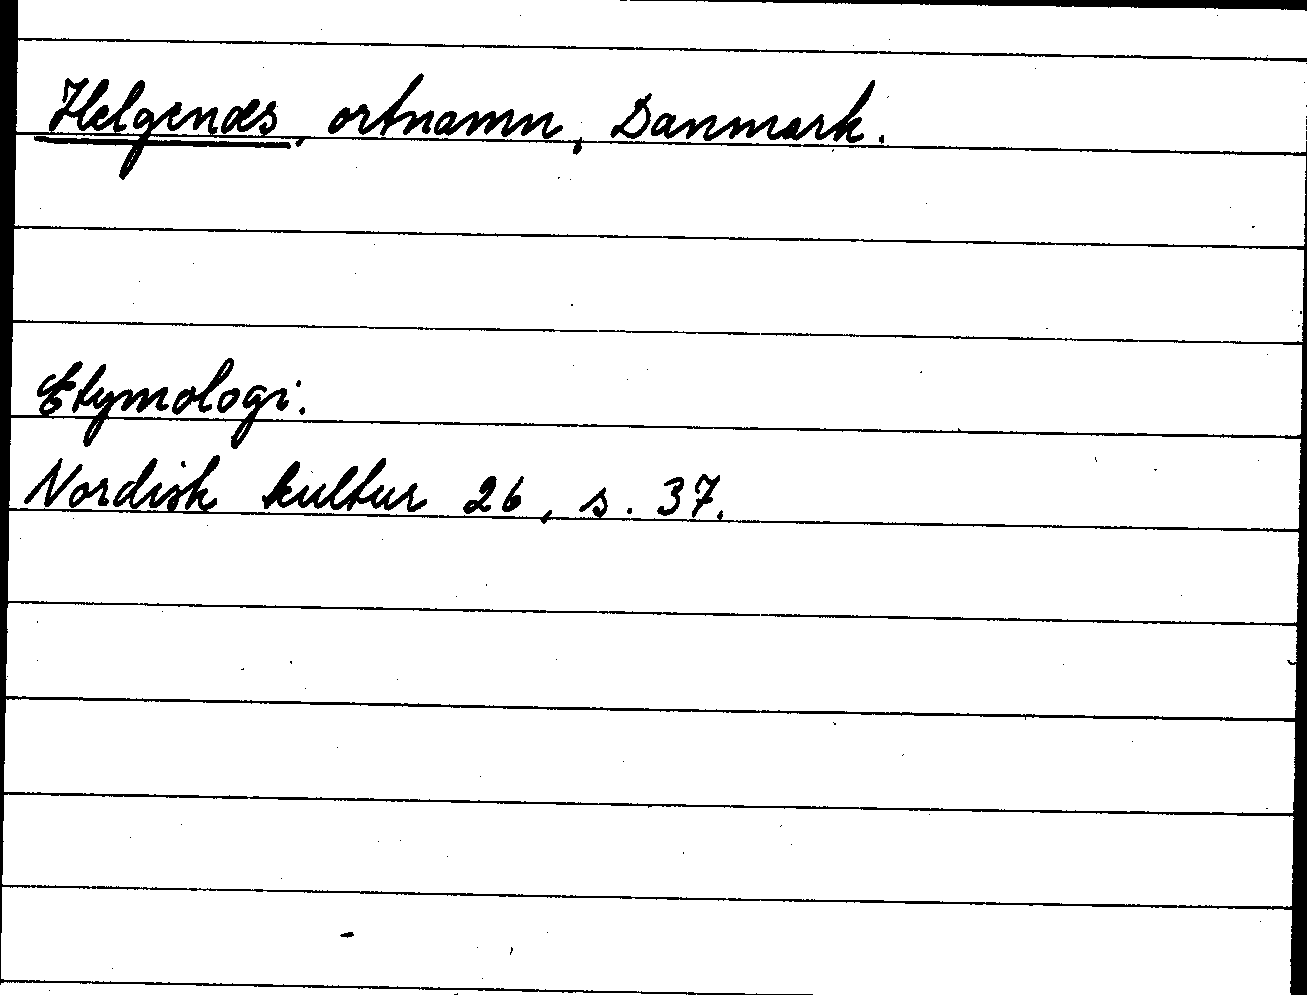 Helgenæs, ortnamn, Danmark.
Etymologi:
Nordisk kultur 26, s. 37.